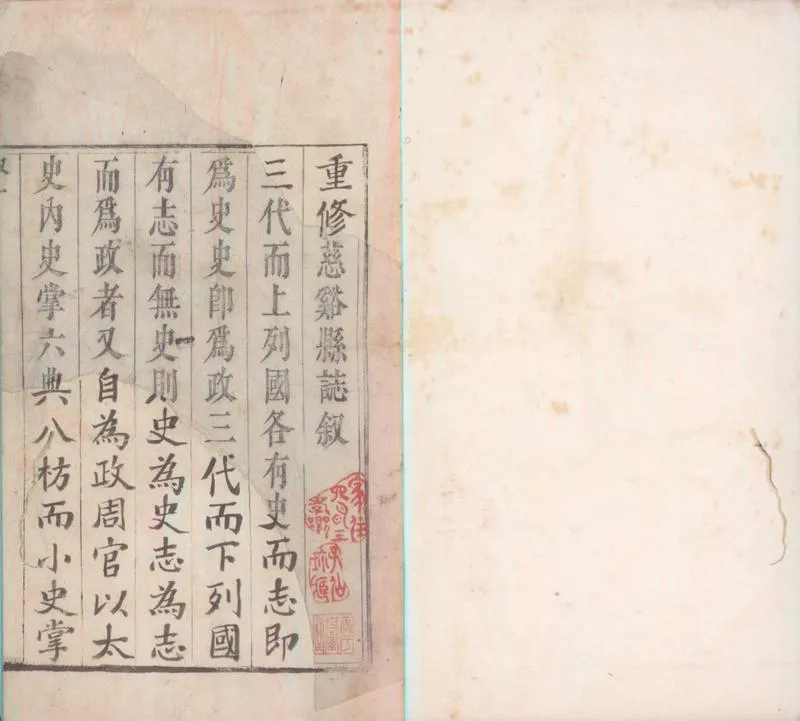 重修慈谿縣誌叙
三代而上列國各有史而志即
爲史史即爲政三代而下列國
有志而無史則史為史志為志
而爲政者又自為政周官以太
史内史掌六典八枋而小史掌